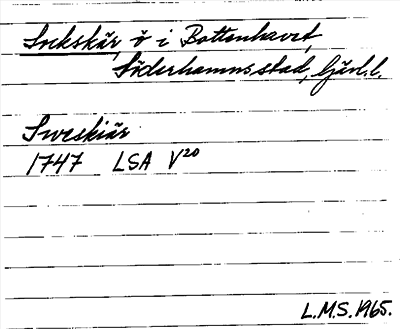 Sockskär, ö i Bottenhavet,
Söderhamns stad, Gävl.l.
Sweskiär
1747 LSA V20
L.M.S. 1965.